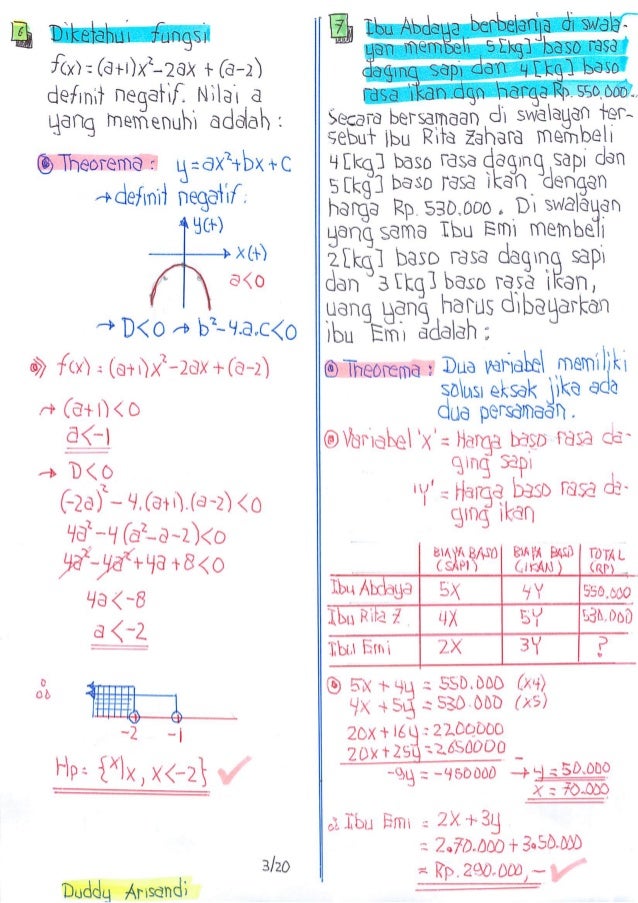 6 Diketahui fungsi
f(x) = (a+1)x²-2ax + (a-2)
definit negatif. Nilai a
yang memenuhi adalah :
Theorema : y = ax²+bx+c
→ definit negatif :
y(+)
x(+)
a<0
→ D<0 → b²-4.a.c<0
f(x) = (a+1)x²-2ax+(a-2)
→ (a+1)<0
a<-1
→ D<0
(-2a)² - 4.(a+1).(a-2)<0
4a²-4(a²-a-2)<0
4a²-4a²+4a+8<0
4a<-8
a<-2
-2 -1
Hp = {x|x, x<-2} ✓
7 Ibu Abdaya berbelanja di swala-
yan membeli 5[kg] baso rasa
daging sapi dan 4[kg] baso
rasa ikan dgn harga Rp. 550.000..
Secara bersamaan di swalayan ter-
sebut ibu Rita Zahara membeli
4[kg] baso rasa daging sapi dan
5[kg] baso rasa ikan dengan
harga Rp. 530.000. Di swalayan
yang sama Ibu Emi membeli
2[kg] baso rasa daging sapi
dan 3[kg] baso rasa ikan,
uang yang harus dibayarkan
ibu Emi adalah :
Theorema : Dua variabel memiliki
solusi eksak jika ada
dua persamaan.
Variabel 'x' = Harga baso rasa da-
ging sapi
'y' = Harga baso rasa da-
ging ikan
BIAYA BASO (SAPI) BIAYA BASO (IKAN) TOTAL (RP)
Ibu Abdaya 5X 4Y 550.000
Ibu Rita Z 4X 5Y 530.000
Ibu Emi 2X 3Y ?
5x + 4y = 550.000 (x4)
4x + 5y = 530.000 (x5)
20x+16y = 2200000
20x+25y = 2650000 -
-9y = -450000 → y = 50.000
x = 70.000
∴ Ibu Emi = 2x+3y
= 2.70.000 + 3.50.000
= Rp. 290.000,- ✓
3/20
Duddy Arisandi